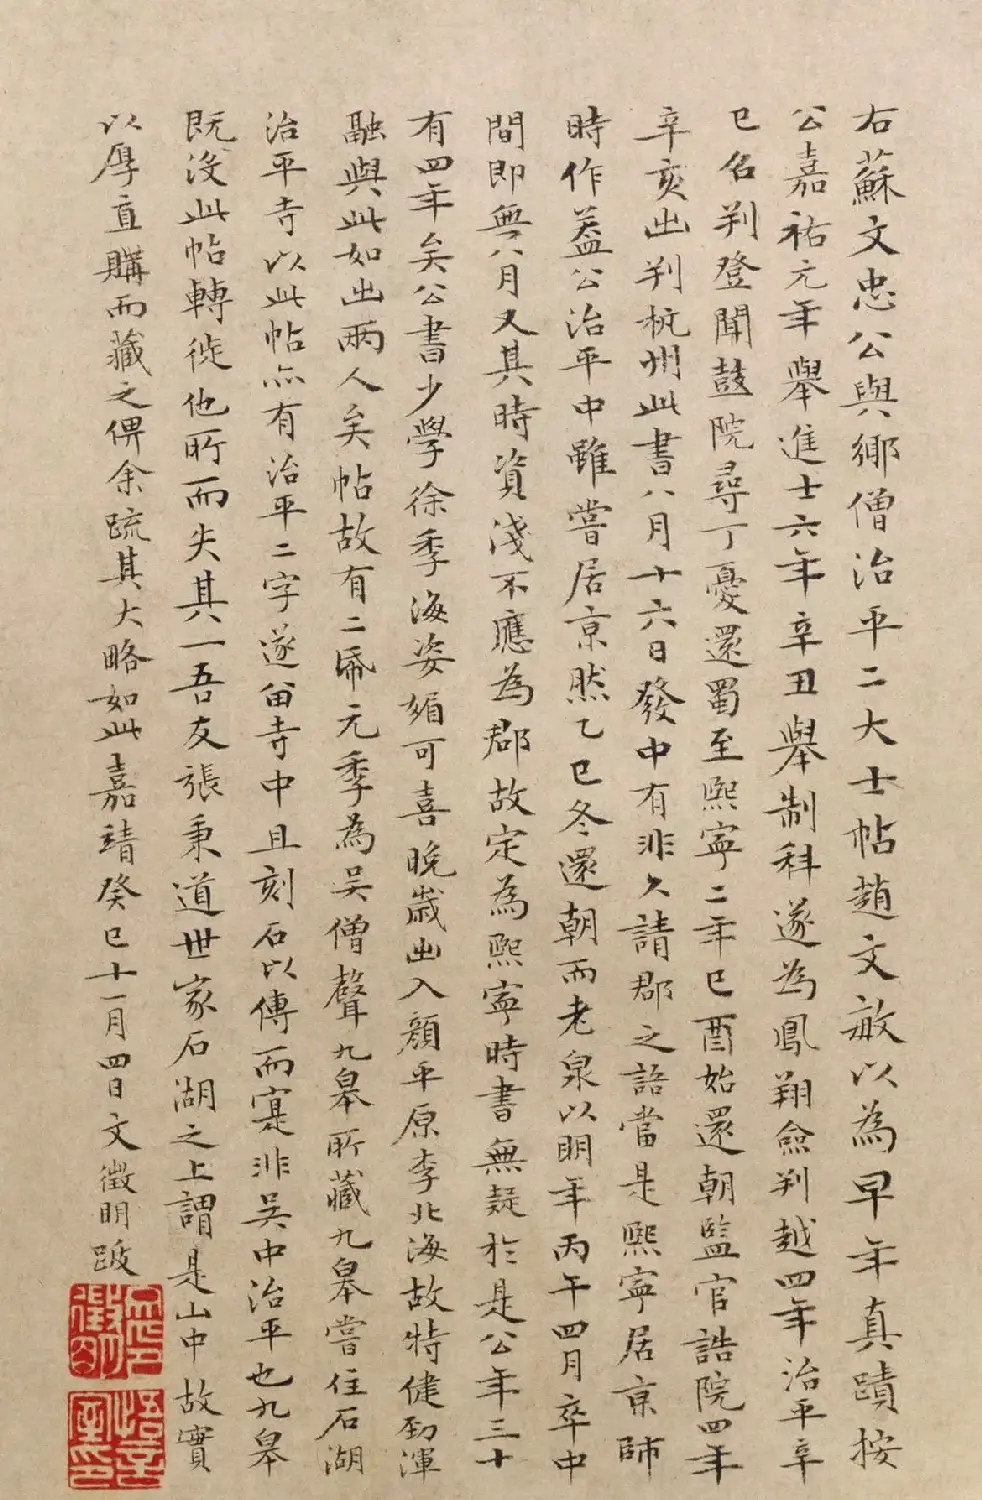 右蘇文忠公與鄉僧治平二大士帖趙文敏以為早年真蹟按
公嘉祐元年舉進士六年辛丑舉制科遂為鳳翔僉判越四年治平辛
巳名判登聞鼓院尋丁憂還蜀至熙寧二年巳酉始還朝監官誥院四年
辛亥出判杭州此書八月十六日發中有非久請郡之語當是熙寧居京師
時作葢公治平中雖嘗居京然乙巳冬還朝而老泉以明年丙午四月卒中
間即無八月又其時資淺不應為郡故定為熙寧時書無疑於是公年三十
有四年矣公書少學徐季海姿媚可喜晚歲出入顏平原李北海故特健勁渾
融與此如出兩人矣帖故有二帋元季為吳僧聲九皋所藏九皋嘗住石湖
治平寺以此帖亦有治平二字遂留寺中且刻石以傳而寔非吳中治平也九皋
既沒此帖轉徙他所而失其一吾友張秉道世家石湖之上謂是山中故實
以厚直購而藏之俾余疏其大略如此嘉靖癸巳十一月四日文徵明跋
徵明
悟言室印